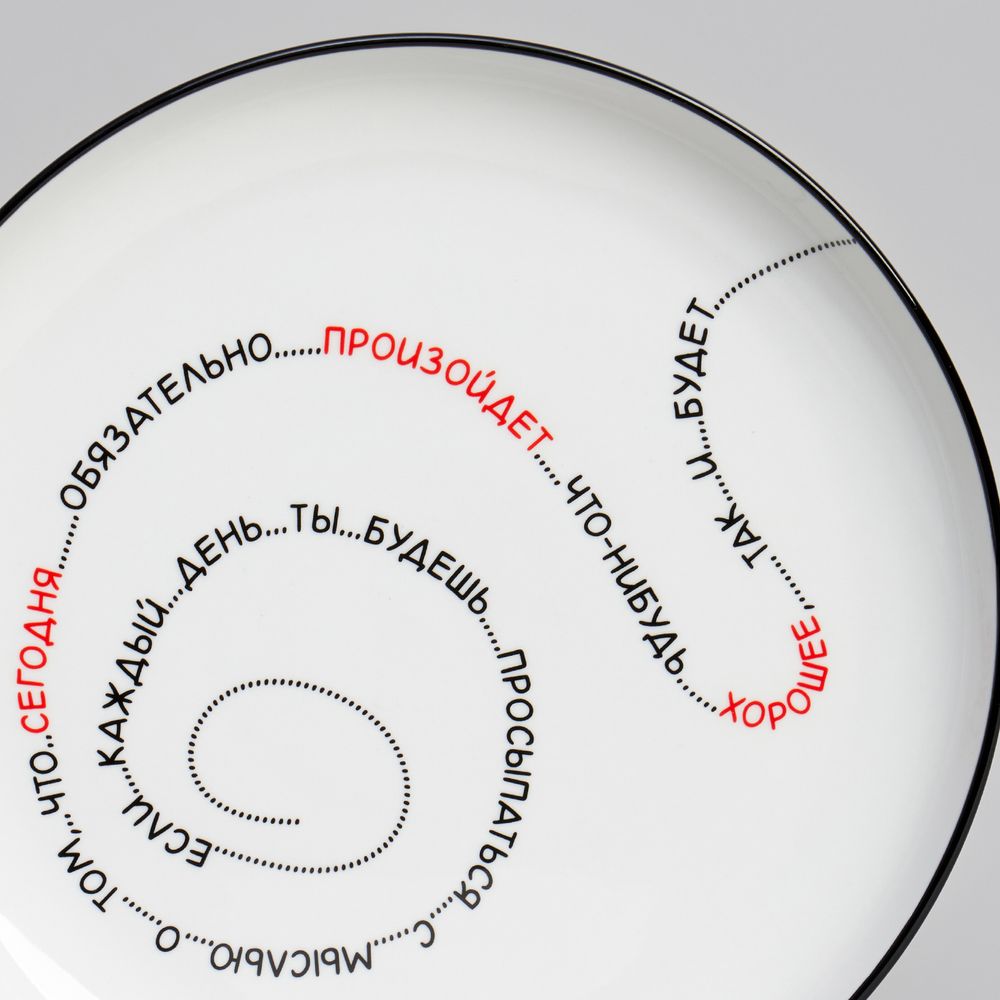 ЕСЛИ......КАЖДЫЙ...ДЕНЬ...ТЫ...БУДЕШЬ......ПРОСЫПАТЬСЯ......С......МЫСЛЬЮ.....О......ТОМ,...ЧТО..СЕГОДНЯ........ОБЯЗАТЕЛЬНО......ПРОИЗОЙДЕТ......ЧТО-НИБУДЬ......ХОРОШЕЕ........ТАК....И....БУДЕТ